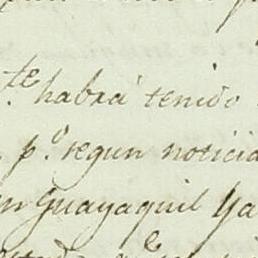 te habrá tenido
p.º segun noticia
n Guayaquil ya